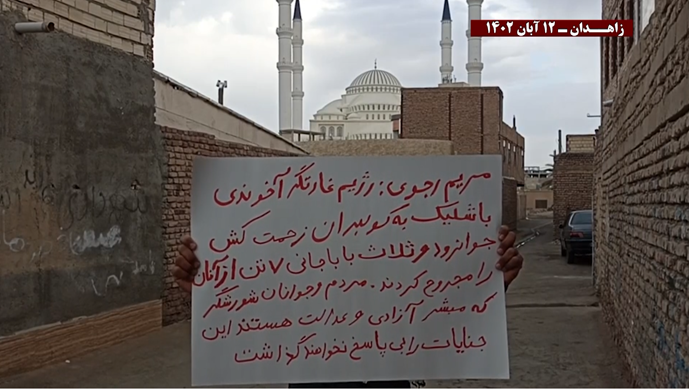 زاهـدان ــ ۱۲ آبان ۱۴۰۲
مریم رجوی: رژیم غارتگر آخوندی
با شلیک به کولبران زحمت کش
جوانرود و ثلاث باباجانی ۷ تن از آنان
را مجروح کردند. مردم و جوانان شورشگر
که مبشر آزادی و عدالت هستند این
جنایات را بی پاسخ نخواهند گذاشت